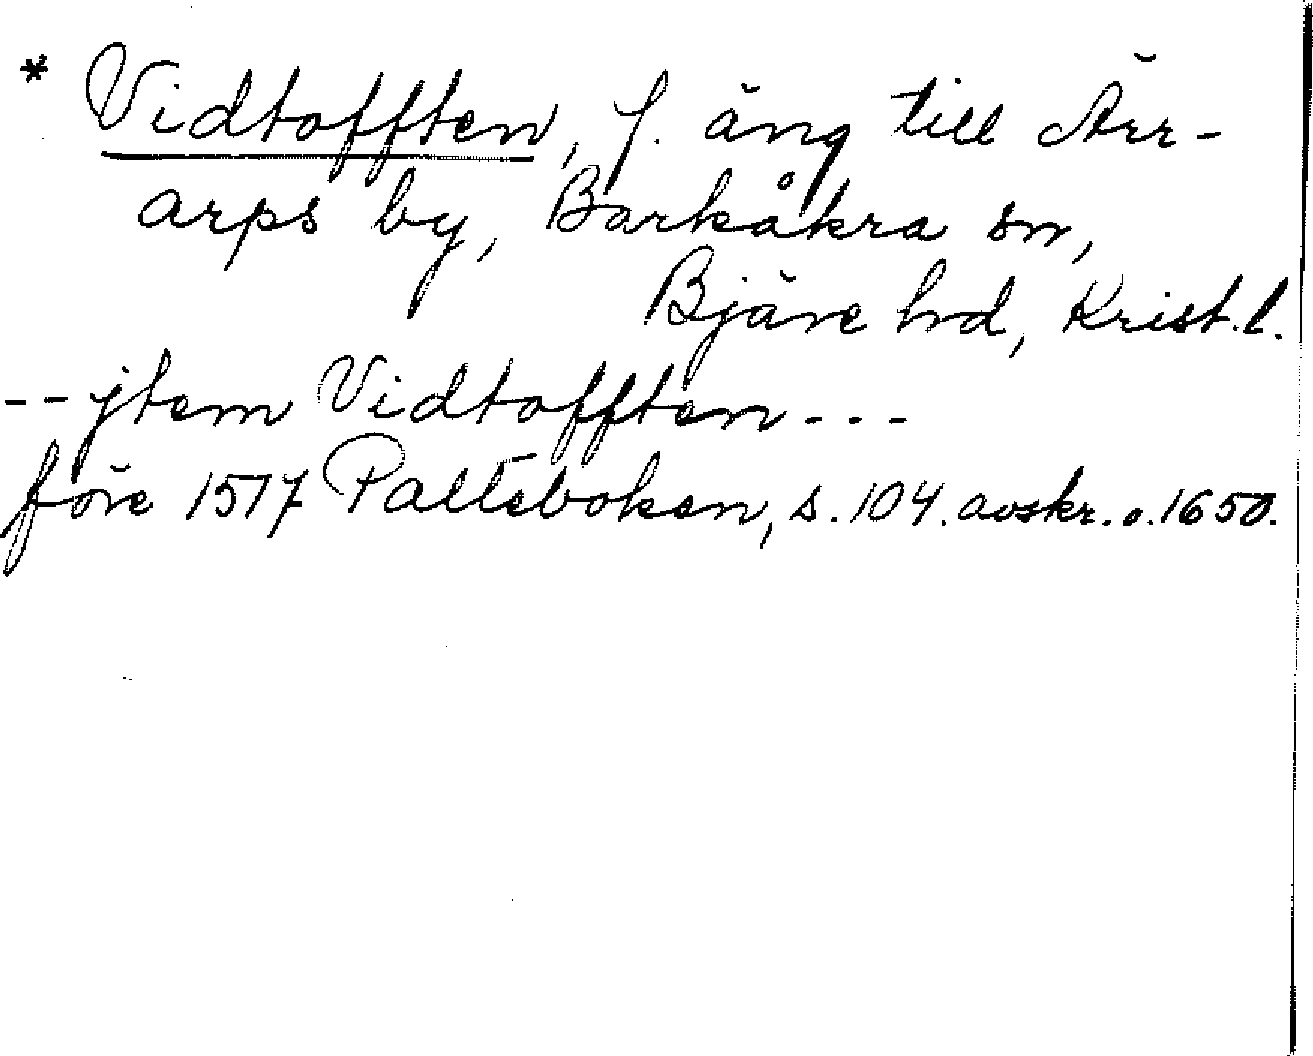 * Vidtofften, f. äng till Ärr-
arps by, Barkåkra sn,
Bjäre hd, Krist. l.
-- jtem Vidtofften ---
före 1517 Palteboken, s. 104. avskr. o. 1650.